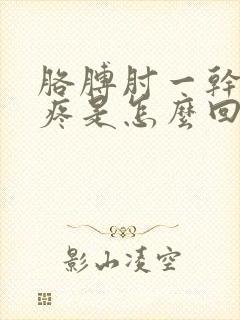 胳膊肘一幹
疼是怎麼回
影山凌空